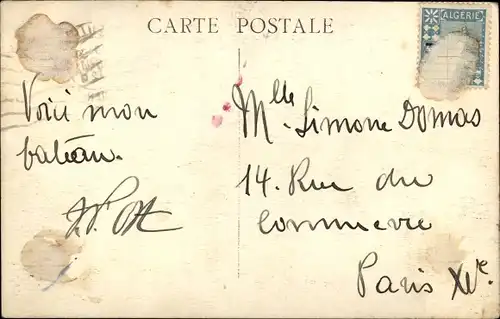 CARTE POSTALE
ALGÉRIE
Voici mon
bateau.
Mlle Simone Domas
14. Rue du
Commerce
Paris XVe.